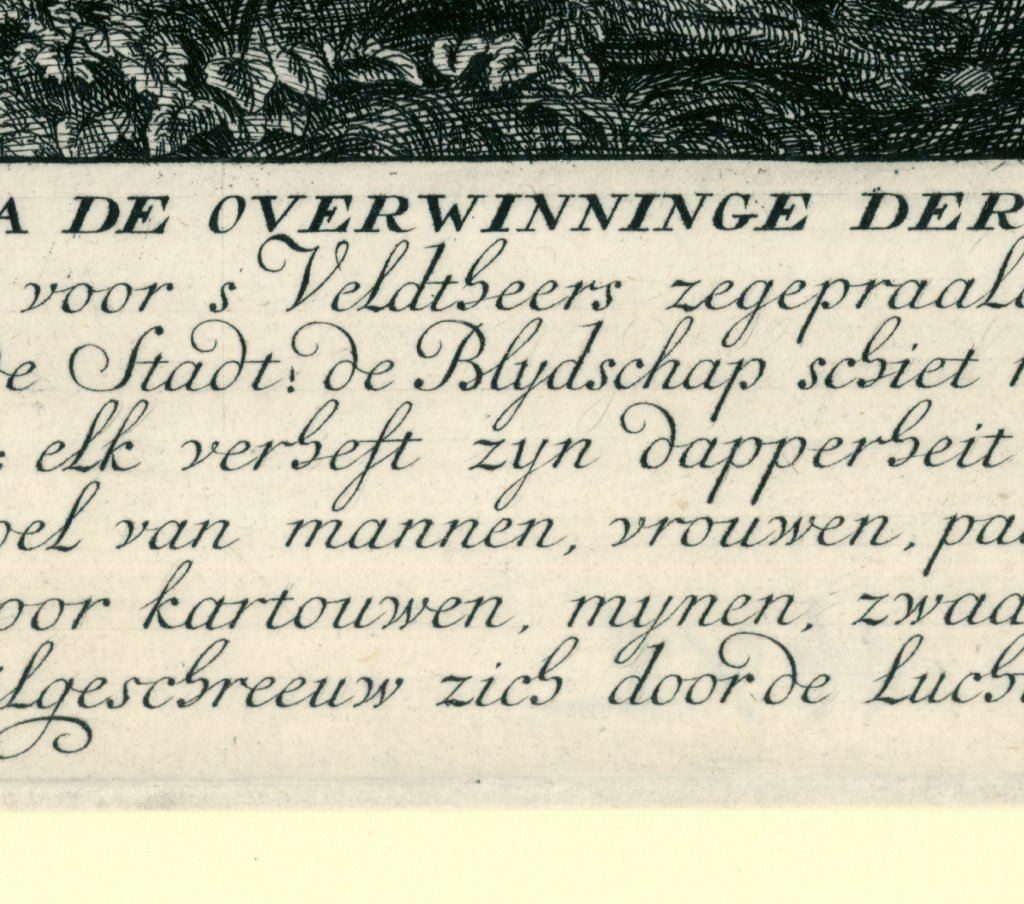 A DE OVERWINNINGE DER
voor s' Veldtheers zegepraal
de Stadt: de Blydschap schiet
: elk verheft zyn dapperheit
van mannen, vrouwen,
kartouwen, mynen,
zich door de